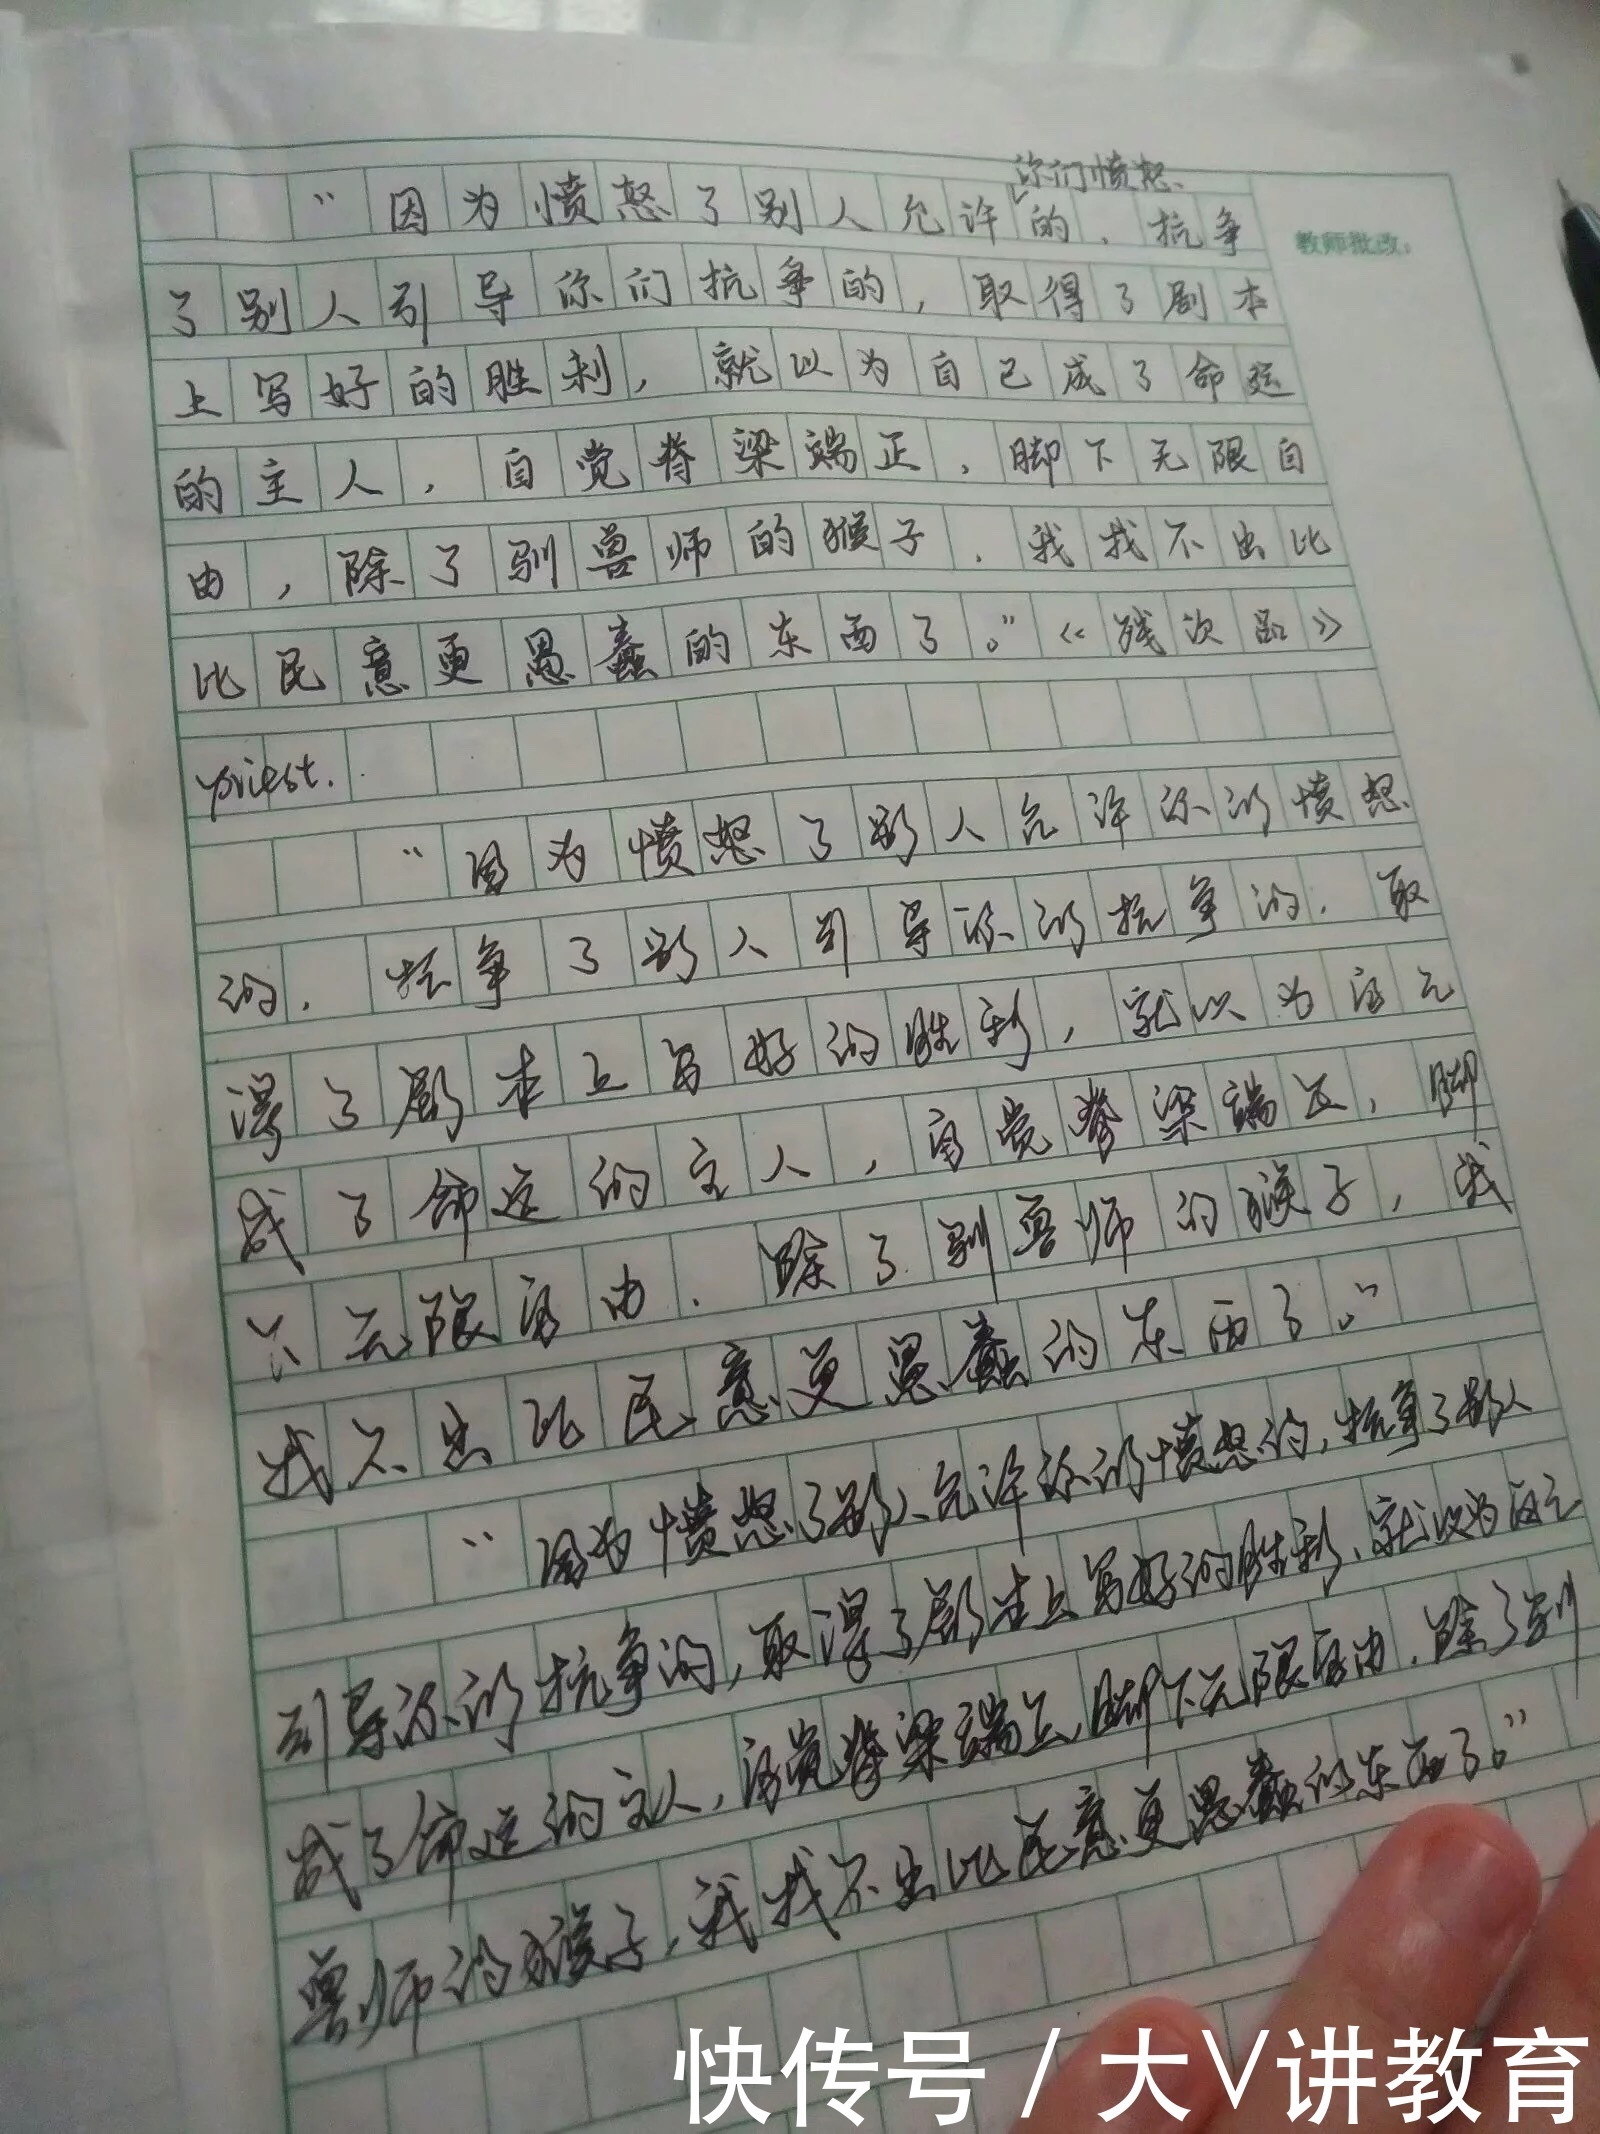 你们愤怒
“因为愤怒了别人允许的，抗争
教师批改：
了别人引导你们抗争的，取得了剧本
上写好的胜利，就以为自己成了命运
的主人，自觉脊梁端正，脚下无限自
由，除了驯兽师的猴子，我找不出比
比民意更愚蠢的东西了。”《残次品》
priest.
“因为愤怒了别人允许你们愤怒
的，抗争了别人引导你们抗争的，取
得了剧本上写好的胜利，就以为自己
成了命运的主人，自觉脊梁端正，脚
下无限自由，除了驯兽师的猴子，我
找不出比民意更愚蠢的东西了。”
“因为愤怒了别人允许你们愤怒的，抗争了别人
引导你们抗争的，取得了剧本上写好的胜利，就以为自己
成了命运的主人，自觉脊梁端正，脚下无限自由，除了驯
兽师的猴子，我找不出比民意更愚蠢的东西了。”
快传号 / 大V讲教育